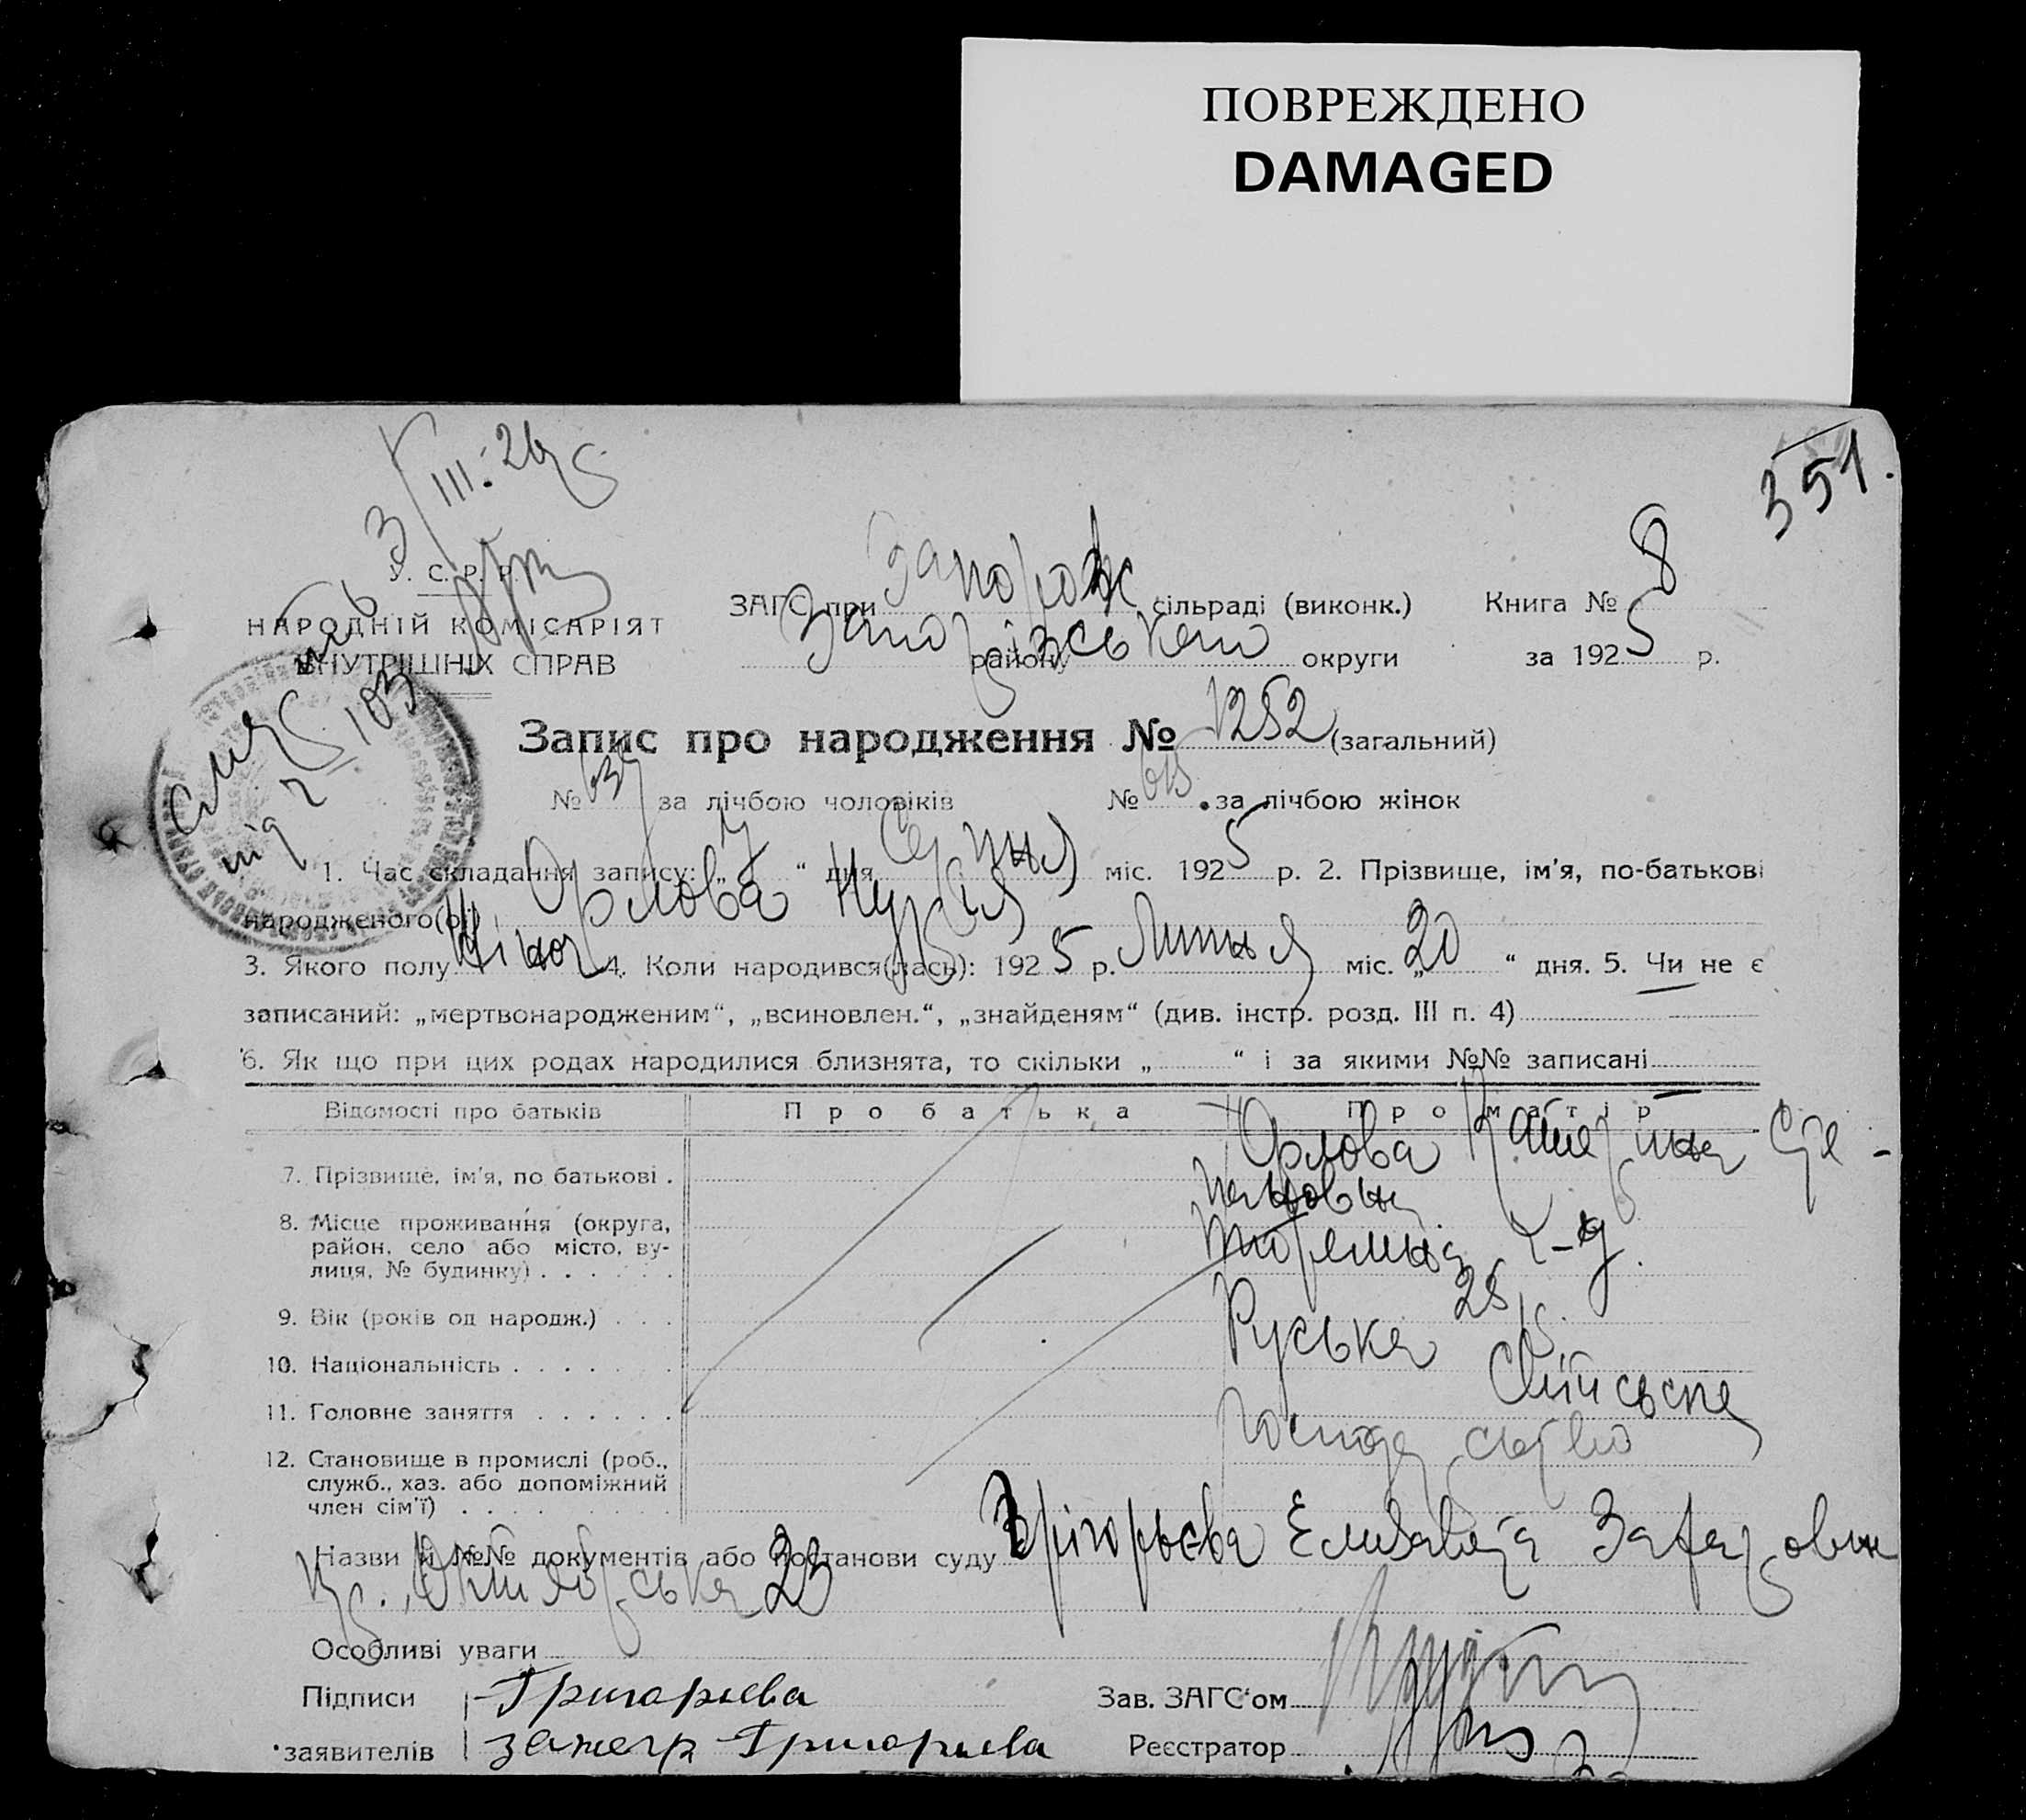 ПОВРЕЖДЕНО
DAMAGED
3/III-26
351.
У. С. Р. Р.
НАРОДНІЙ КОМІСАРІЯТ
ВНУТРІШНІХ СПРАВ
ЗАГС при Запорож сільраді (виконк.) Книга № 8
району округи за 1925 р.
Смерть
під 2 103
Запис про народження № 1252 (загальний)
№ за лічбою чоловіків № 615 за лічбою жінок
1. Час складання запису: „7“ дня Серпня міс. 1925 р. 2. Прізвище, ім’я, по-батькові
народженого(ої) Орлова
3. Якого полу Жіноч 4. Коли народився(лась): 1925 р. Липня міс. „20“ дня. 5. Чи не є
записаний: „мертвонародженим“, „всиновлен.“, „знайденям“ (див. інстр. розд. III п. 4)
6. Як що при цих родах народилися близнята, то скільки „ “ і за якими №№ записані
Відомості про батьків Про батька Про матір
7. Прізвище, ім’я, по батькові . Орлова Катерина Сте-
пановна
8. Місце проживання (округа,
район, село або місто, ву-
лиця, № будинку) . . . . . .
9. Вік (років од народж.) . . . 25 р.
10. Національність . . . . . . Руська
11. Головне заняття . . . . . . Сільське
господарство
12. Становище в промислі (роб.,
служб., хаз. або допоміжний
член сім’ї) . . . . . . . . .
Назви й №№ документів або постанови суду Грігорьєва Елизавета
Октяборська 23
Особливі уваги
Підписи Григорьева Зав. ЗАГС‘ом
заявителів Григорьева Реєстратор